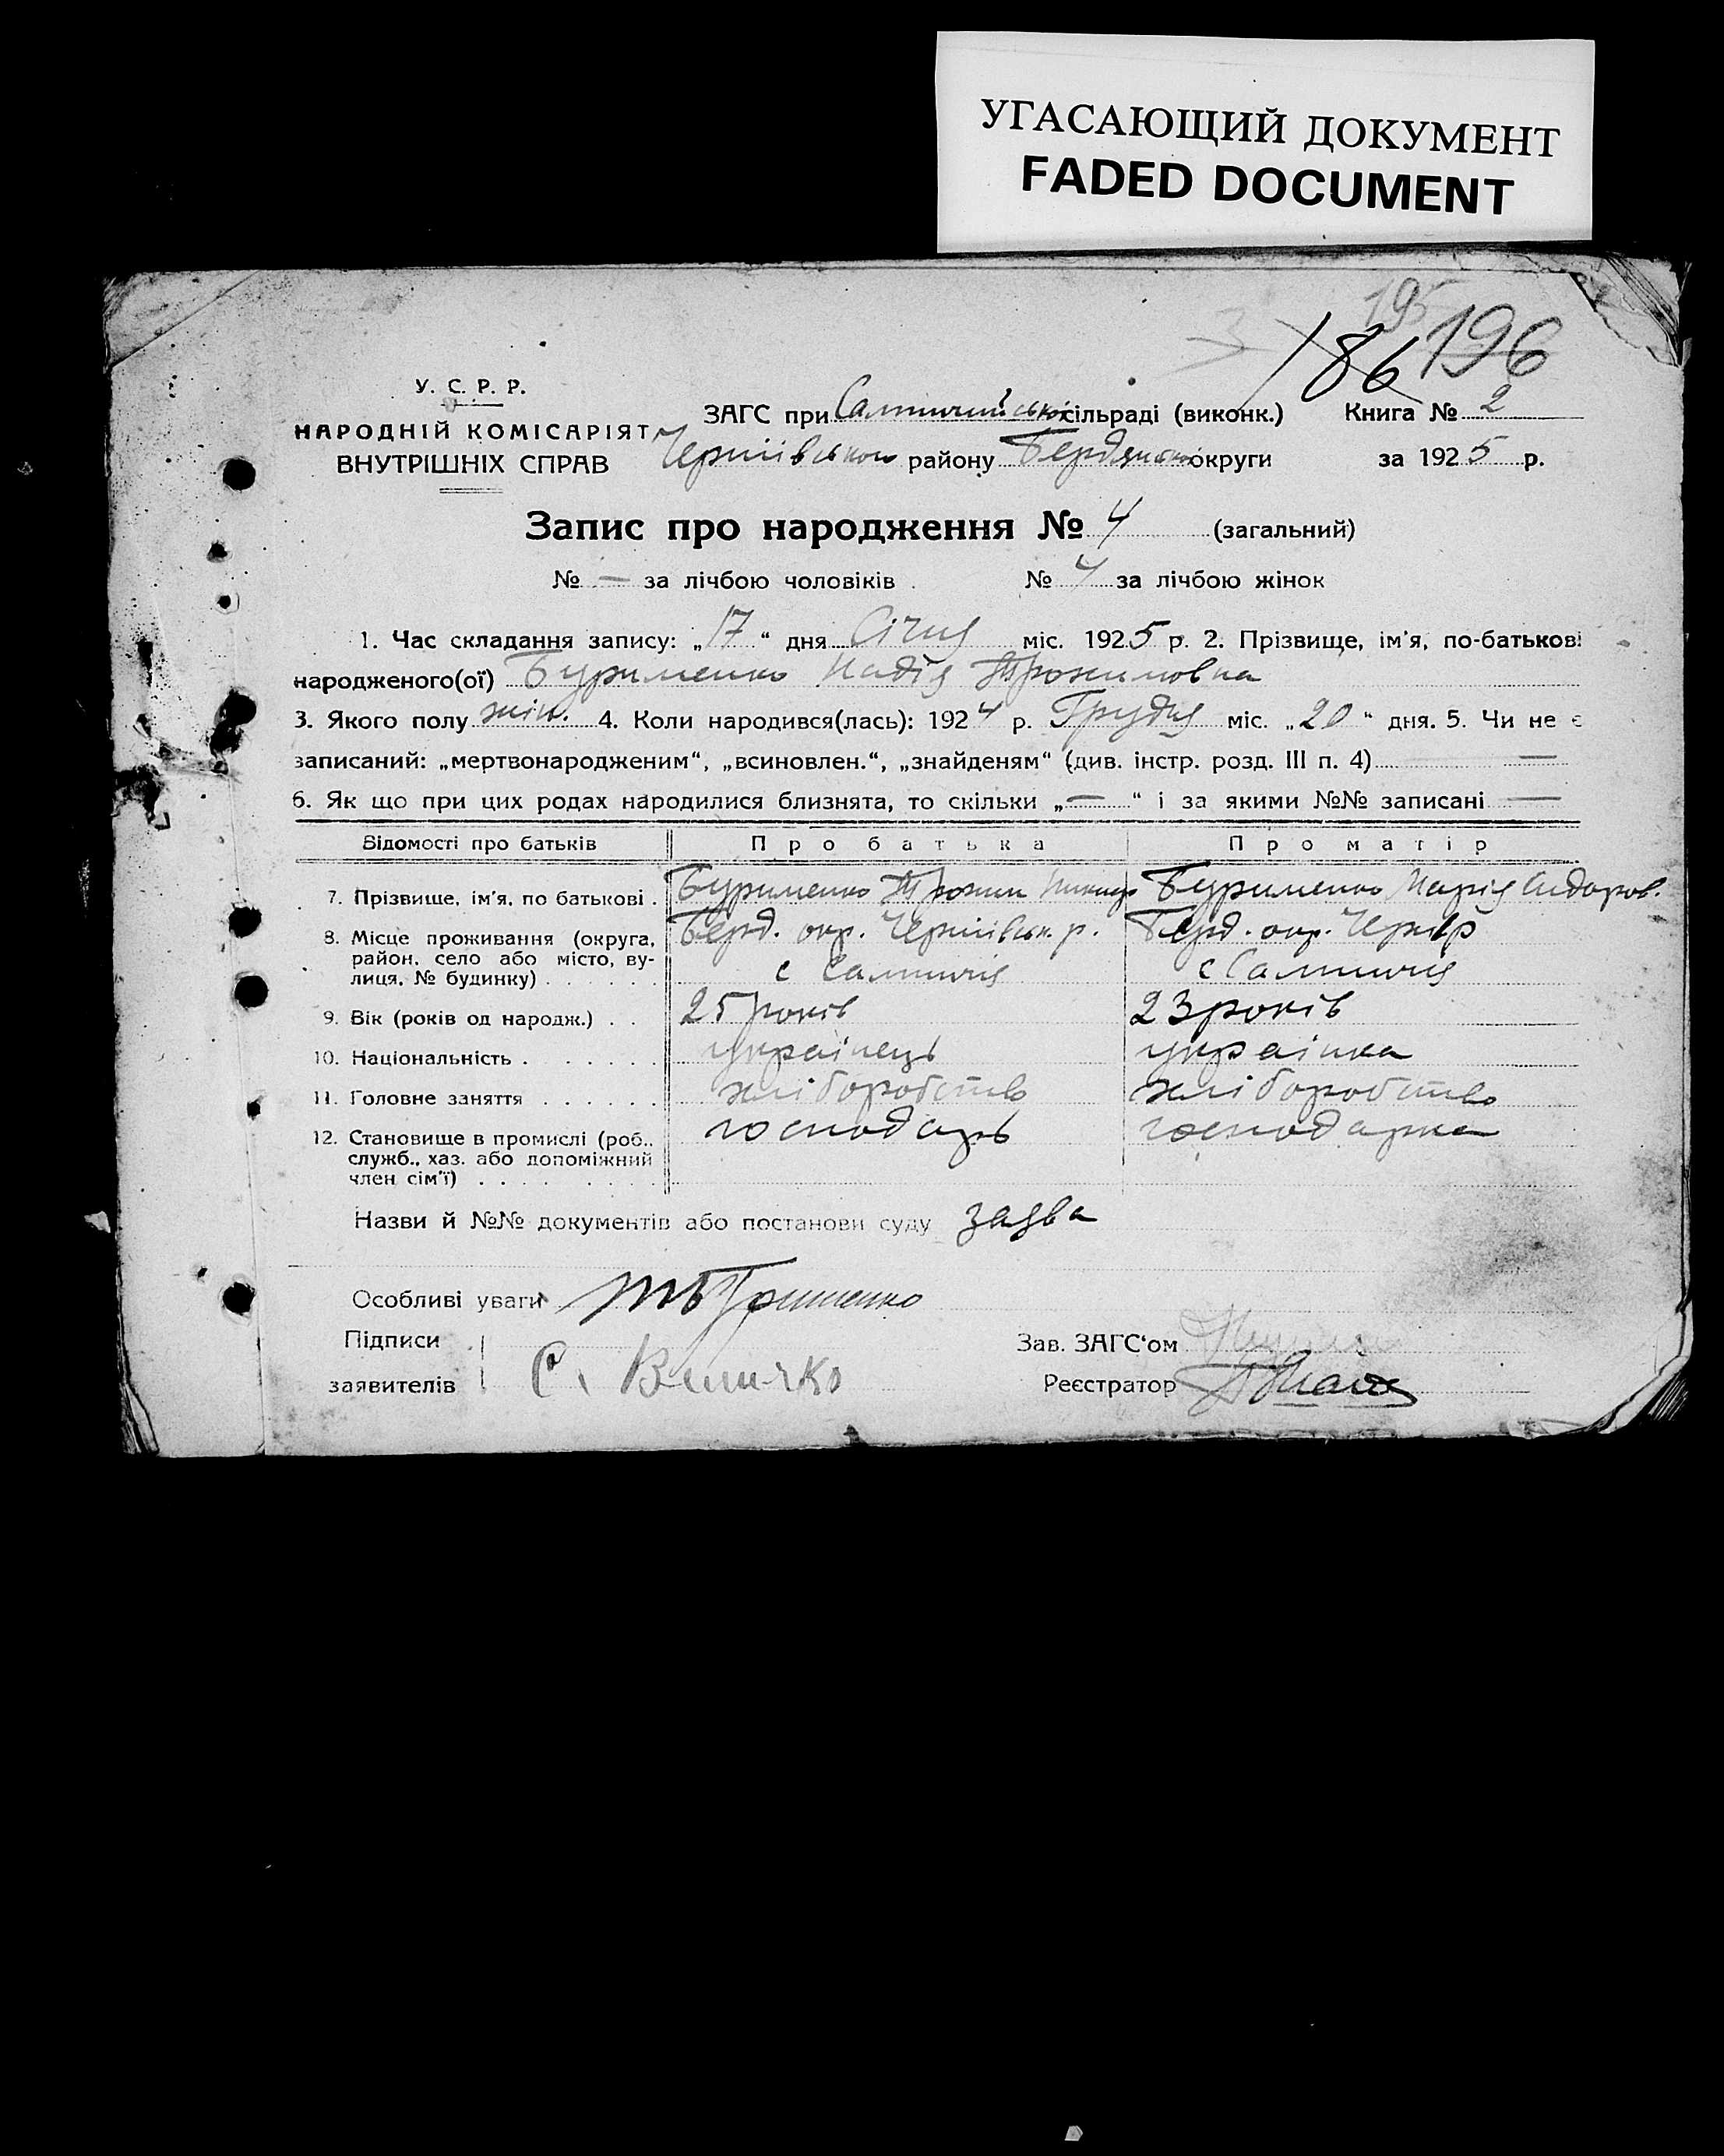 УГАСАЮЩИЙ ДОКУМЕНТ
FADED DOCUMENT
195
186 196
У. С. Р. Р.
НАРОДНІЙ КОМІСАРІЯТ
ВНУТРІШНІХ СПРАВ
ЗАГС при сільраді (виконк.) Книга № 2
району округи за 1925 р.
Запис про народження № 4 (загальний)
№ — за лічбою чоловіків № 4 за лічбою жінок
1. Час складання запису: „17“ дня Січня міс. 1925 р. 2. Прізвище, ім'я, по-батькові
народженого(ої) Бурименко Надія Трохимовна
3. Якого полу жін. 4. Коли народився(лась): 1924 р. Грудня міс. „20“ дня. 5. Чи не є
записаний: „мертвонародженим“, „всиновлен.“, „знайденям“ (див. інстр. розд. III п. 4) —
6. Як що при цих родах народилися близнята, то скільки „—“ і за якими №№ записані —
Відомості про батьків Про батька Про матір
7. Прізвище, ім'я, по батькові . Бурименко Трохим Бурименко Марія Сидоров.
8. Місце проживання (округа, Берд. окр. р. Берд. окр.
район, село або місто, ву-
лиця, № будинку) . . . . . . с с
9. Вік (років од народж.) . . 25 років 23 років
10. Національність . . . . . . українець українка
11. Головне заняття . . . . . . хліборобство хліборобство
12. Становище в промислі (роб., господарь господарка
служб., хаз. або допоміжний
член сім'ї) . . . . . . . .
Назви й №№ документів або постанови суду заява
Особливі уваги
Підписи Зав. ЗАГС'ом
заявителів С. Реєстратор